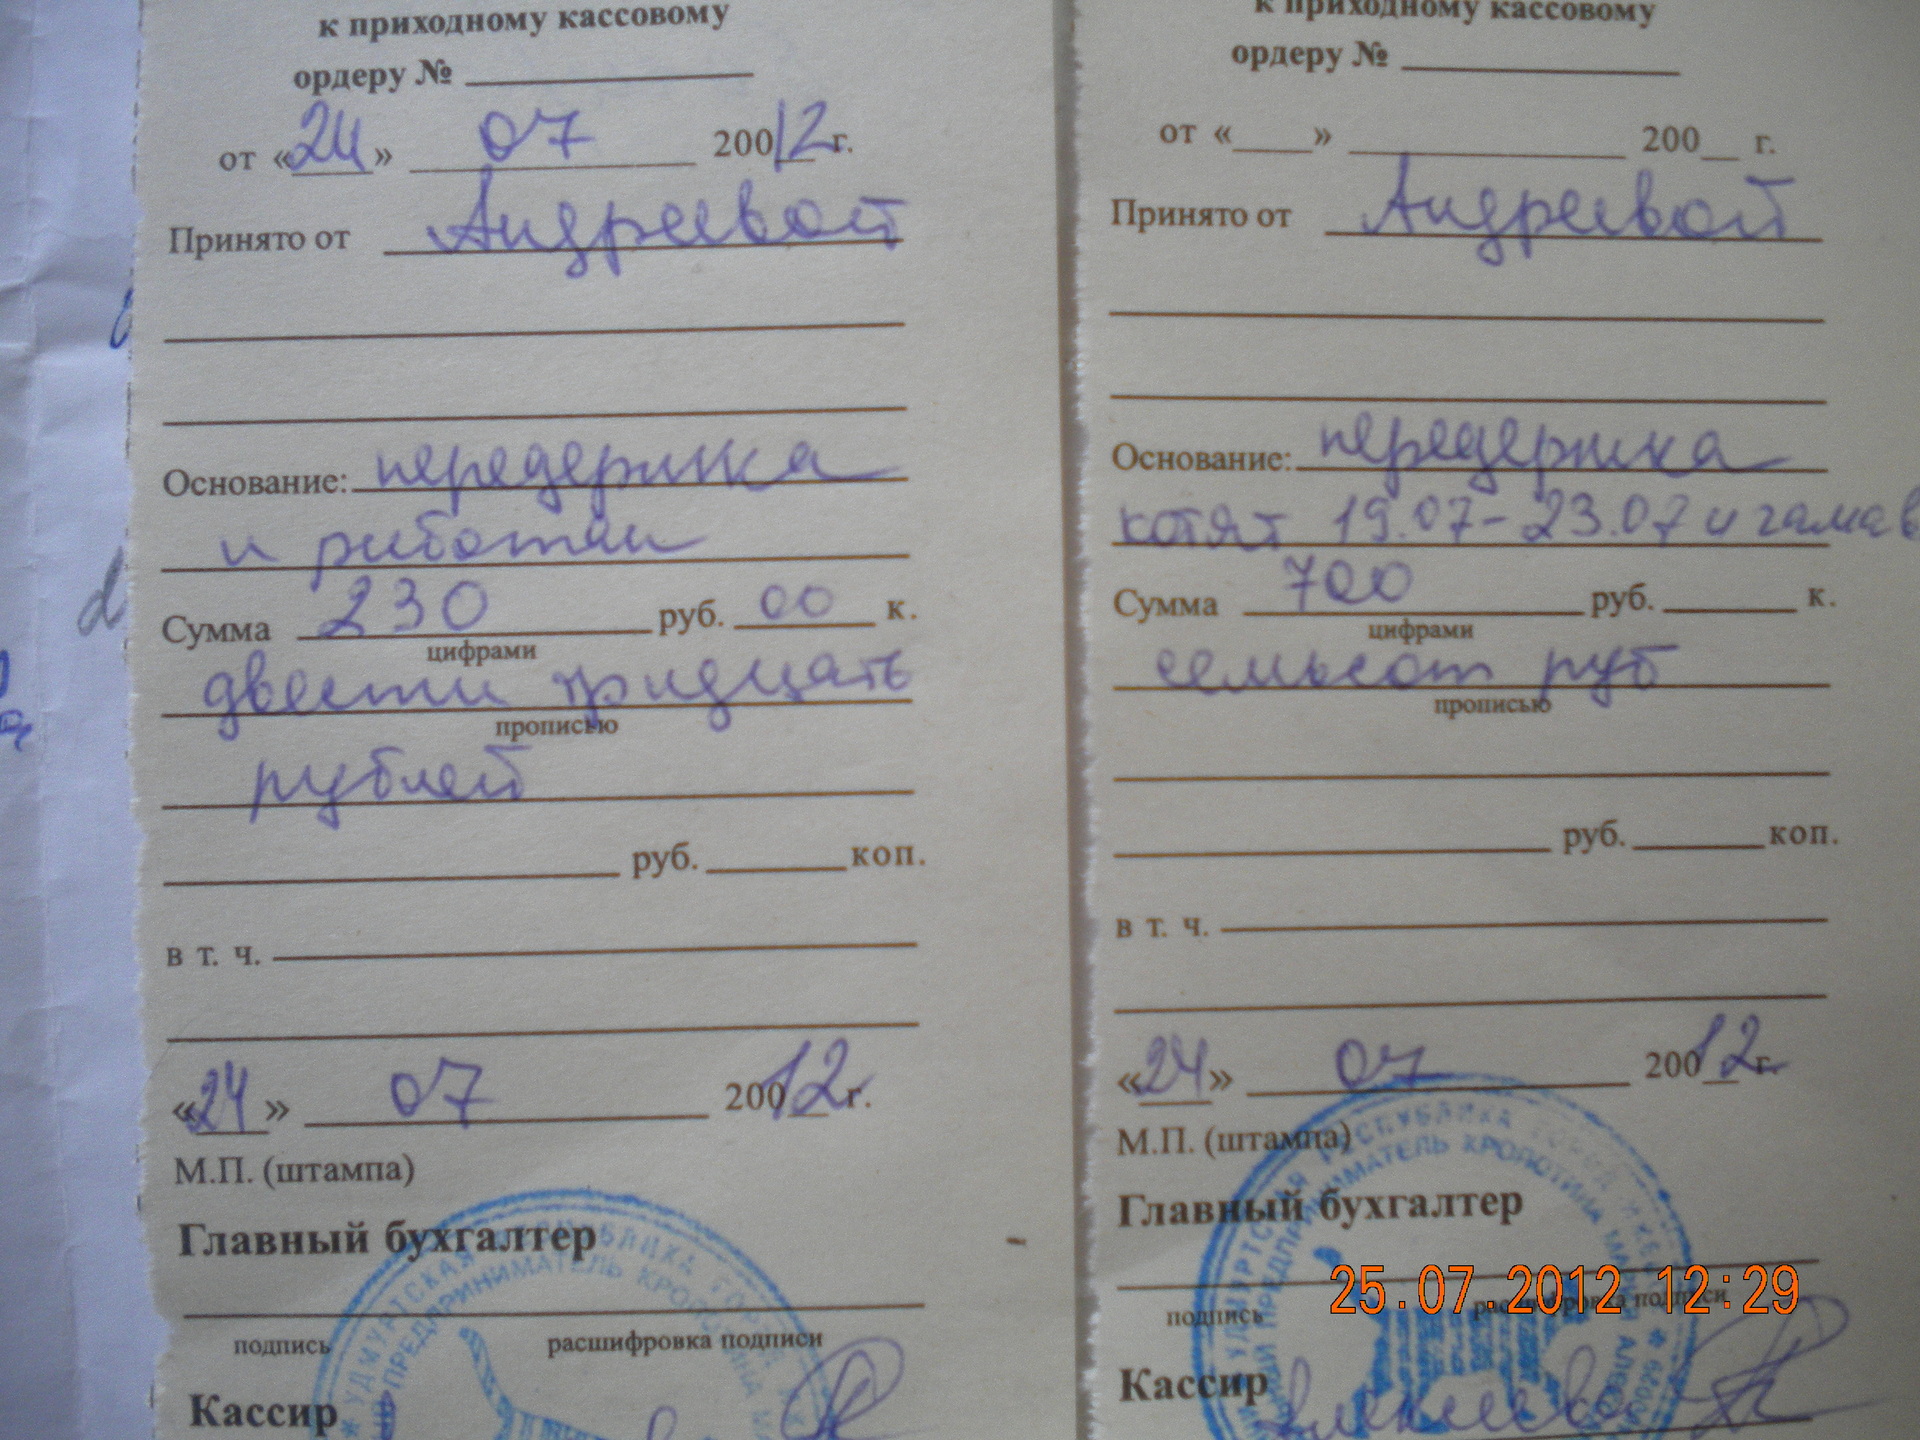 к приходному кассовому
ордеру №
от «24» 07 20012г.
Принято от Андреевой
Основание: передержка
и
Сумма 230 руб. 00 к.
цифрами
двести тридцать
прописью
рублей
руб. коп.
в т. ч.
«24» 07 20012г.
М.П. (штампа)
Главный бухгалтер
подпись расшифровка подписи
Кассир
УДМУРТСКАЯ РЕСПУБЛИКА ГОРОД
ПРЕДПРИНИМАТЕЛЬ КРОПОТИНА
к приходному кассовому
ордеру №
от « » 200 г.
Принято от Андреевой
Основание: передержка
котят 19.07-23.07 и
Сумма 700 руб. к.
цифрами
семьсот руб
прописью
руб. коп.
в т. ч.
«24» 07 20012г.
М.П. (штампа)
Главный бухгалтер
подпись расшифровка подписи
Кассир
УДМУРТСКАЯ РЕСПУБЛИКА ГОРОД
ПРЕДПРИНИМАТЕЛЬ КРОПОТИНА
25.07.2012 12:29